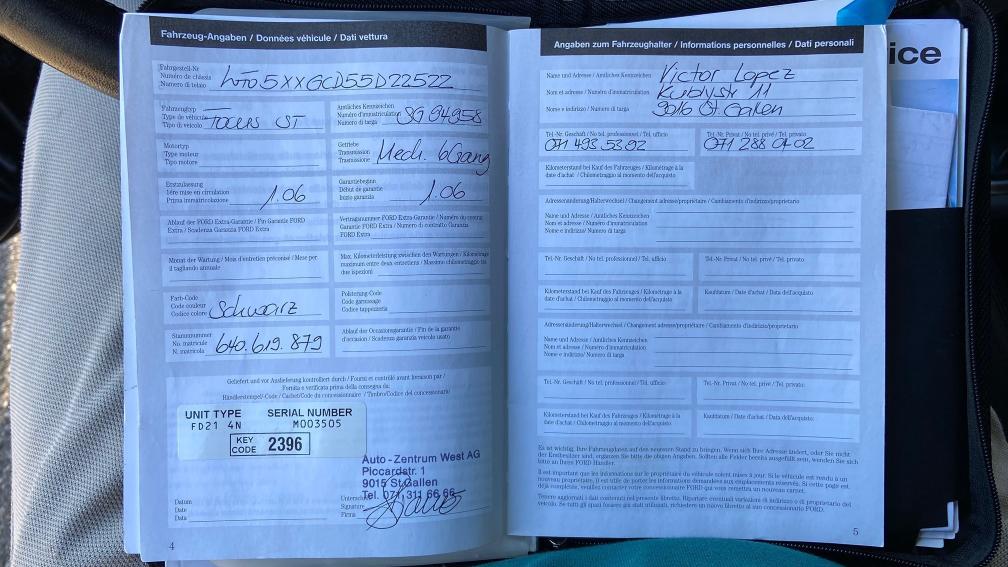 Fahrzeug-Angaben / Données véhicule / Dati vettura
Fahrgestell-Nr
Numéro de châssis
Numero di telaio
WF05XXGCD55D22522
Fahrzeugtyp
Type de véhicule
Tipo di veicolo
Focus ST
Amtliches Kennzeichen
Numéro d'immatriculation
Numero di targa
SG 94958
Motortyp
Type moteur
Tipo motore
Getriebe
Transmission
Trasmissione
Mech. 6Gang
Erstzulassung
1ère mise en circulation
Prima immatricolazione
1.06
Garantiebeginn
Début de garantie
Inizio garanzia
1.06
Ablauf der FORD Extra-Garantie / Fin Garantie FORD
Extra / Scadenza Garanzia FORD Extra
Vertragsnummer FORD Extra-Garantie / Numéro du contrat
Garantie FORD Extra / Numero di contratto Garanzia
FORD Extra
Monat der Wartung / Mois d'entretien préconisé / Mese per
il tagliando annuale
Max. Kilometerleistung zwischen den Wartungen / Kilométrage
maximum entre deux entretiens / Massimo chilometraggio tra
due ispezioni
Farb-Code
Code couleur
Codice colore
Schwarz
Polsterung-Code
Code garnissage
Codice tappezzeria
Stammnummer
No. matricule
N. matricola
640.619.879
Ablauf der Occasionsgarantie / Fin de la garantie
d'occasion / Scadenza garanzia veicolo usato
Geliefert und vor Auslieferung kontrolliert durch / Fourni et contrôlé avant livraison par /
Fornita e verificata prima della consegna da:
Händlerstempel/-Code / Cachet/Code du concessionnaire / Timbro/Codice del concessionario
UNIT TYPE SERIAL NUMBER
FD21 4N M003505
KEY
CODE 2396
Auto-Zentrum West AG
Piccardstr. 1
9015 St.Gallen
Tel. 071 311 66 66
Datum
Date
Data
Signature
Firma
4
Angaben zum Fahrzeughalter / Informations personnelles / Dati personali
Name und Adresse / Amtliches Kennzeichen
Nom et adresse / Numéro d'immatriculation
Nome e indirizzo / Numero di targa
Victor Lopez
9016 St.Gallen
Tel.-Nr. Geschäft / No tel. professionnel / Tel. ufficio
071 493 53 92
Tel.-Nr. Privat / No tel. privé / Tel. privato
071 288 04 02
Kilometerstand bei Kauf des Fahrzeuges / Kilométrage à la
date d'achat / Chilometraggio al momento dell'acquisto
Adressenänderung/Halterwechsel / Changement adresse/propriétaire / Cambiamento d'indirizzo/proprietario
Name und Adresse / Amtliches Kennzeichen
Nom et adresse / Numéro d'immatriculation
Nome e indirizzo/ Numero di targa
Tel.-Nr. Geschäft / No tel. professionnel / Tel. ufficio
Tel.-Nr. Privat / No tel. privé / Tel. privato
Kilometerstand bei Kauf des Fahrzeuges / Kilométrage à la
date d'achat / Chilometraggio al momento dell'acquisto
Kaufdatum / Date d'achat / Data dell'acquisto
Adressenänderung/Halterwechsel / Changement adresse/propriétaire / Cambiamento d'indirizzo/proprietario
Name und Adresse / Amtliches Kennzeichen
Nom et adresse / Numéro d'immatriculation
Nome e indirizzo/ Numero di targa
Tel.-Nr. Geschäft / No tel. professionnel / Tel. ufficio
Tel.-Nr. Privat / No tel. privé / Tel. privato:
Kilometerstand bei Kauf des Fahrzeuges / Kilométrage à la
date d'achat / Chilometraggio al momento dell'acquisto
Kaufdatum / Date d'achat / Data dell'acquisto:
Es ist wichtig, Ihre Fahrzeugdaten auf den neuesten Stand zu bringen. Wenn sich Ihre Adresse ändert, oder Sie nicht
der Erstbesitzer sind, ergänzen Sie bitte die obigen Angaben. Sollten alle Felder bereits ausgefüllt sein, wenden Sie sich
bitte an Ihren FORD Händler.
Il est important que les informations sur le propriétaire du véhicule soient mises à jour. Si le véhicule est rendu à un
Tenere aggiornati i dati contenuti nel presente libretto. Riportare eventuali variazioni di indirizzo o di proprietario del
veicolo. Se tutti gli spazi fossero già stati utilizzati, richiedere un nuovo libretto al suo concessionario FORD.
5
ice